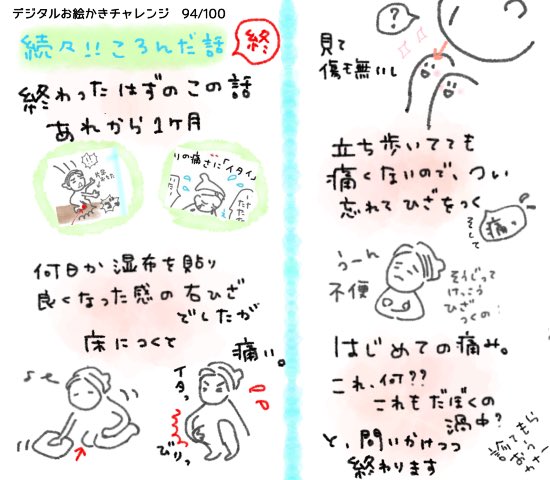 デジタルお絵かきチャレンジ 94/100
続々!!ころんだ話
終
終わったはずのこの話
あれから1ヶ月
りの痛さに「イタイ」
何日か湿布を貼り
良くなった感の右ひざ
でしたが
床につくと
痛い。
イタっ
びりっ
?
見て
傷も無いし
立ち歩いてても
痛くないので、つい
忘れてひざをつく
そして
痛っ
うーん
不便
そうじって
けっこう
ひざ
つくの…
はじめての痛み。
これ、何??
これもだぼくの
渦中?
と、問いかけつつ
終わります
診てもら
おっ
カナー